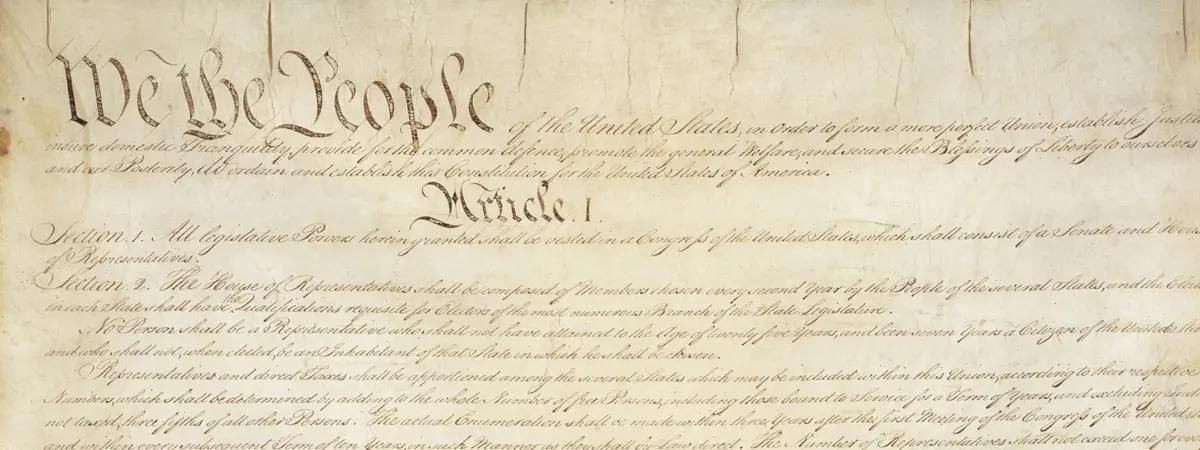 We the People of the United States, in Order to form a more perfect Union, establish Justice,
insure domestic Tranquility, provide for the common defence, promote the general Welfare, and secure the Blessings of Liberty to ourselves
and our Posterity, do ordain and establish this Constitution for the United States of America.
Article. I.
Section. 1. All legislative Powers herein granted shall be vested in a Congress of the United States, which shall consist of a Senate and House
of Representatives.
Section. 2. The House of Representatives shall be composed of Members chosen every second Year by the People of the several States, and the Elect
in each State shall have the Qualifications requisite for Electors of the most numerous Branch of the State Legislature.
No Person shall be a Representative who shall not have attained to the Age of twenty five Years, and been seven Years a Citizen of the United Sta
and who shall not, when elected, be an Inhabitant of that State in which he shall be chosen.
Representatives and direct Taxes shall be apportioned among the several States which may be included within this Union, according to their respective
Numbers, which shall be determined by adding to the whole Number of free Persons, including those bound to Service for a Term of Years, and excluding Indi
not taxed, three fifths of all other Persons. The actual Enumeration shall be made within three Years after the first Meeting of the Congress of the United
and within every subsequent Term of ten Years, in such Manner as they shall by Law direct. The Number of Representatives shall not exceed one for eve